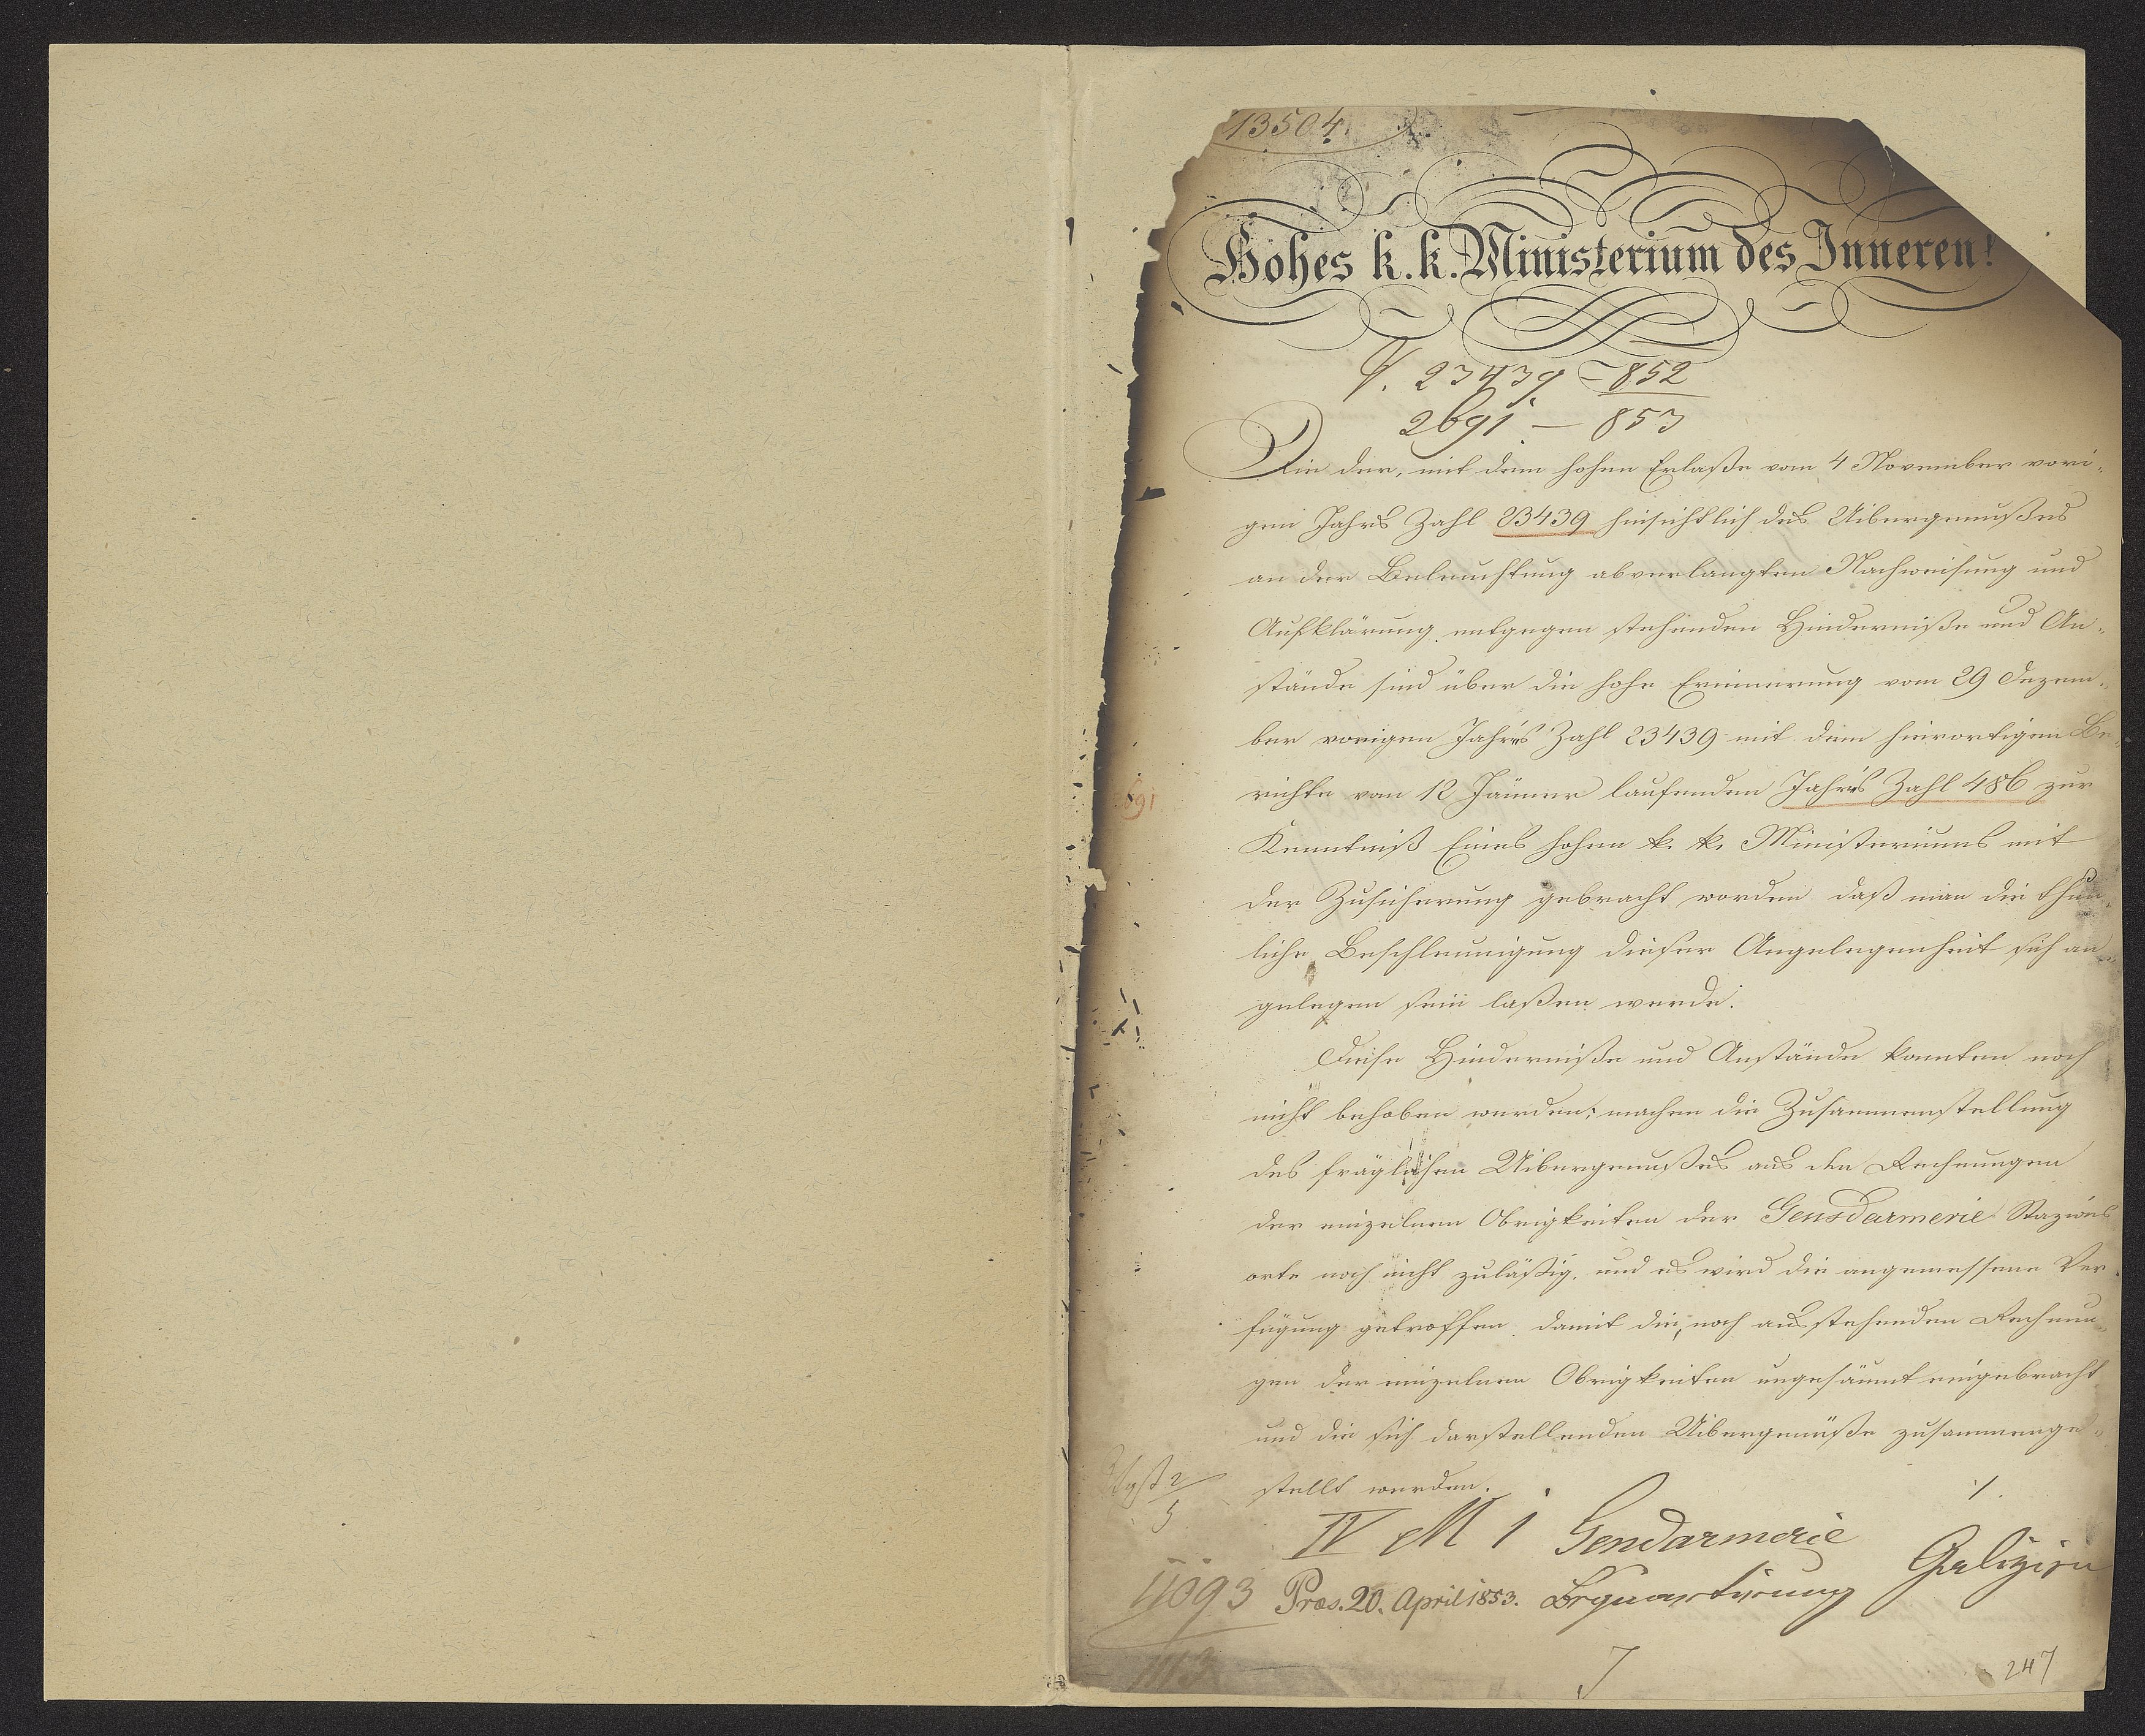 13504.
Hohes k. k. Ministerium des Inneren!
V. 23439 – 852
2691 – 853
Die der, mit dem hohen Erlaße vom 4 November vori-
gen Jahrs Zahl 23439 hinsichtlich des Uibergenußes
an der Beleuchtung abverlangten Nachweisung und
Aufklärung entgegen stehenden Hinderniße und An-
stände sind über die hohe Erinnerung vom 29 Dezem-
ber vorigen Jahrs Zahl 23439 mit dem hierortigen Be-
richte vom 12 Jänner laufenden Jahrs Zahl 486 zur
691
Kenntniß Eines hohen k. k. Ministeriums mit
der Zusicherung gebracht worden daß man die thun-
liche Beschleunigung dieser Angelegenheit sich an-
gelegen sein laßen werde.
Diese Hinderniße und Anstände konnten noch
nicht behoben werden; machen die Zusammenstellung
des fräglichen Uibergenußes aus den Rechnungen
der einzelnen Obrigkeiten der Gensdarmerie Stazions
orte noch nicht zuläßig, und es wird die angemessene Ver-
fügung getroffen damit die, noch ausstehenden Rechnun-
gen der einzelnen Obrigkeiten ungesäumt eingebracht
und die sich darstellenden Uibergenüße zusammenge-
stellt werden.
IV M 1 Gendarmerie
Galizien
11093 Præs. 20. April 1853. Bequartirung
247